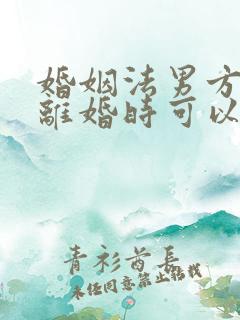 婚姻法男方
離婚時可以
青衫酋長
未经同意禁止转载